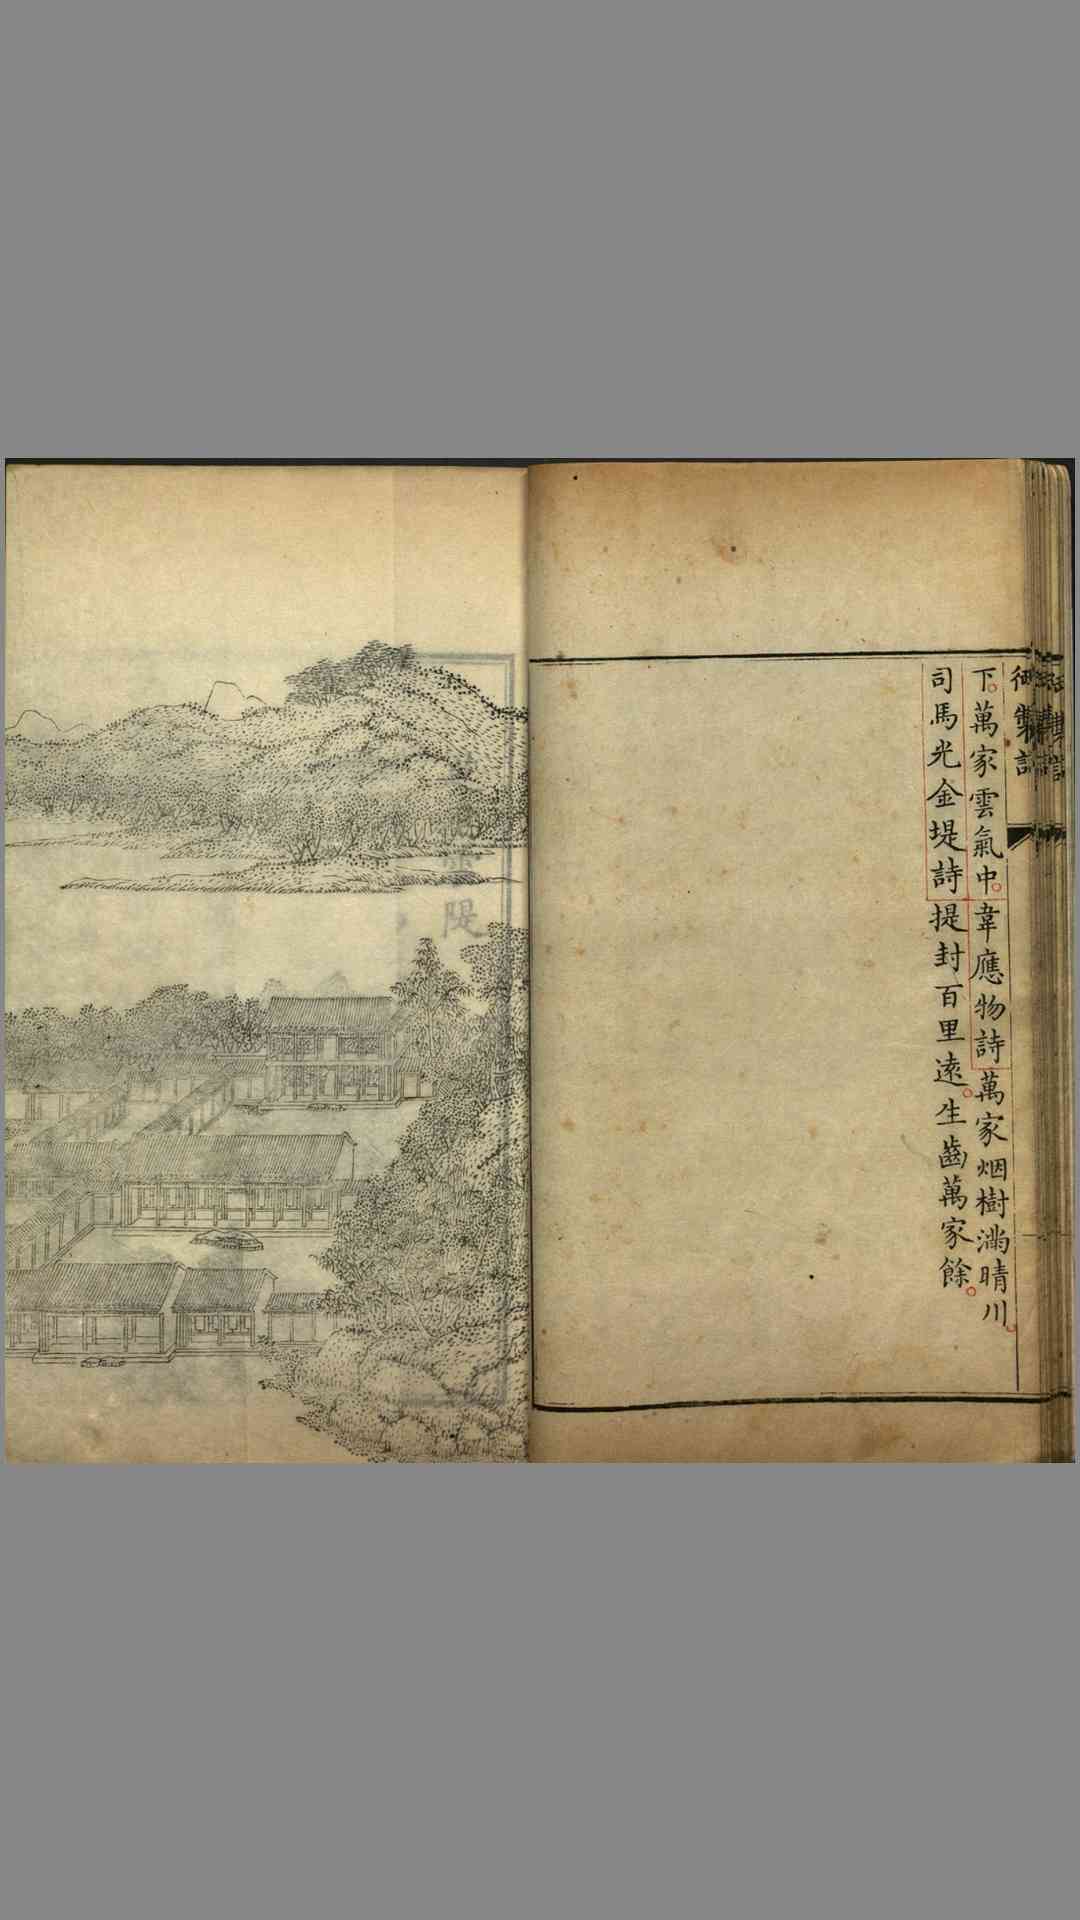 御製詩
下。萬家雲氣中。韋應物詩萬家烟樹滿晴川。
司馬光金堤詩提封百里遠。生齒萬家餘。